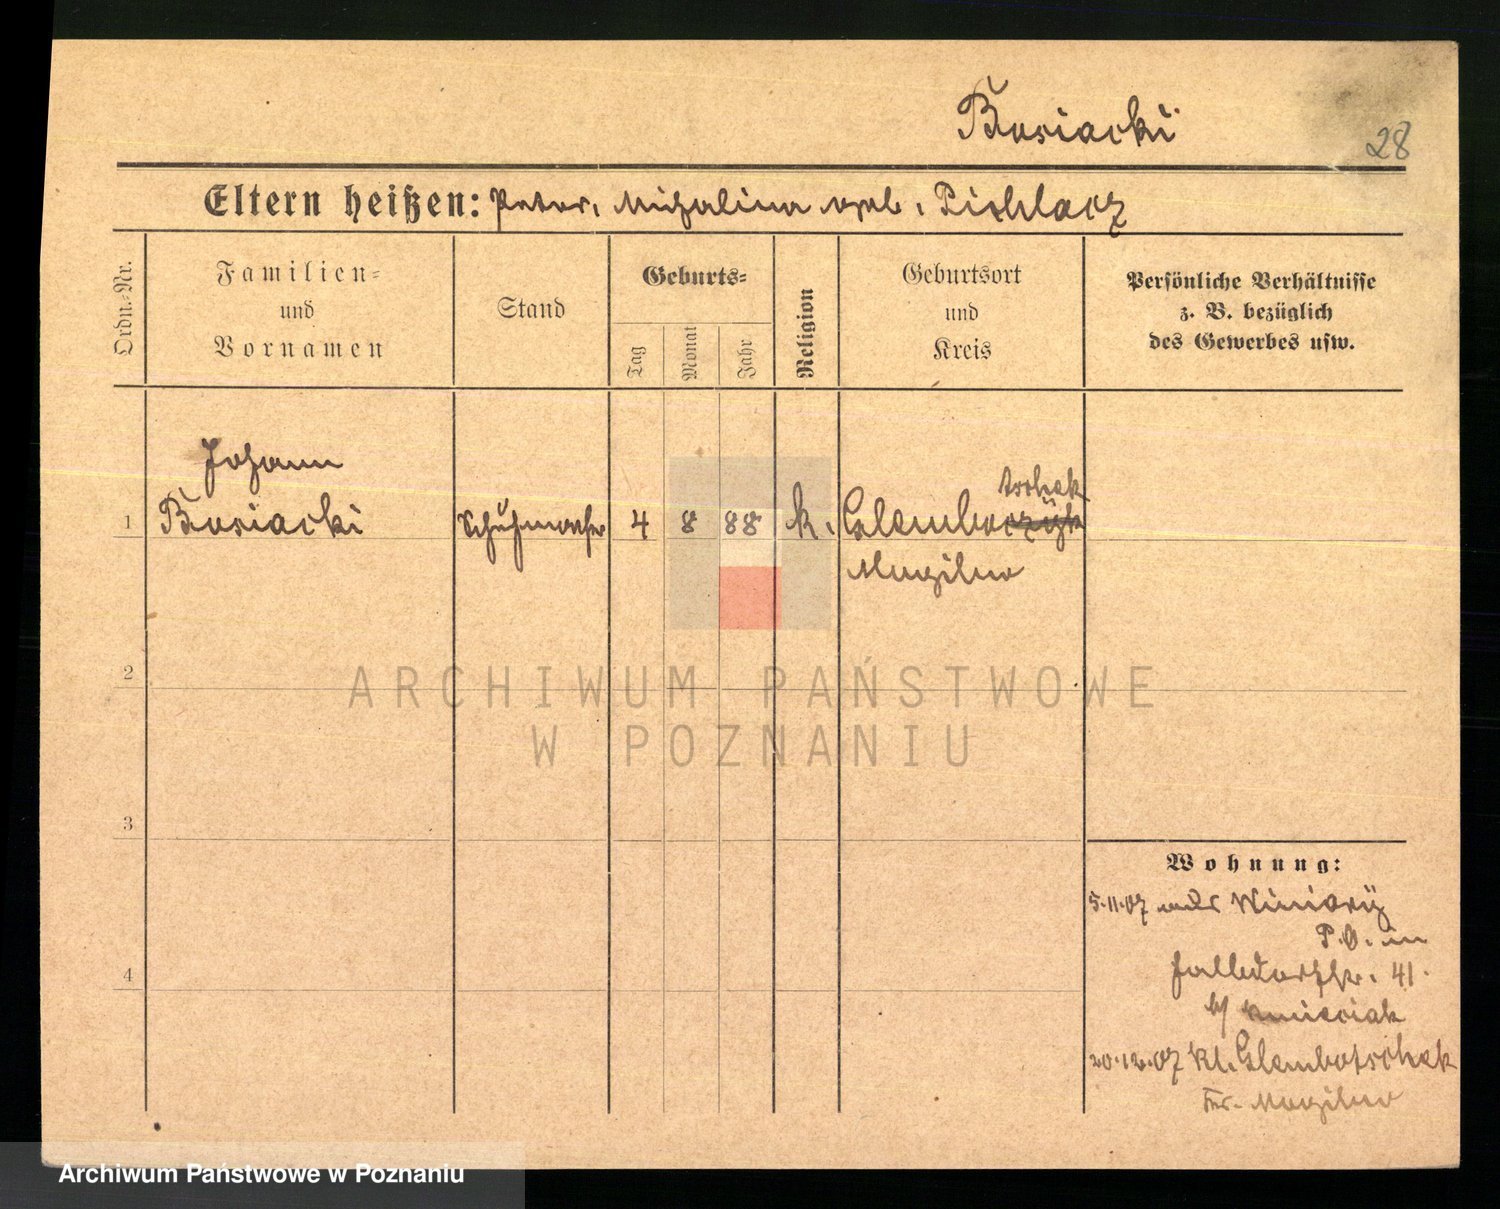 Busiacki
28
Eltern heißen: Peter, Michalina geb. Pichlacz
Ordn.-Nr.
Familien-
und
Vornamen
Stand
Geburts-
Tag
Monat
Jahr
Religion
Geburtsort
und
Kreis
Persönliche Verhältnisse
z. B. bezüglich
des Gewerbes usw.
Johann
tschek
1 Busiacki Schuhmacher 4 8 88 k. Glemboczÿk
Mogilno
2
3
4
Wohnung:
5.11.07 aus Winiarÿ
P. O. in
41.
b/
20.12.07 Kl. Glembotschek
Kr. Mogilno
ARCHIWUM PAŃSTWOWE
W POZNANIU
Archiwum Państwowe w Poznaniu